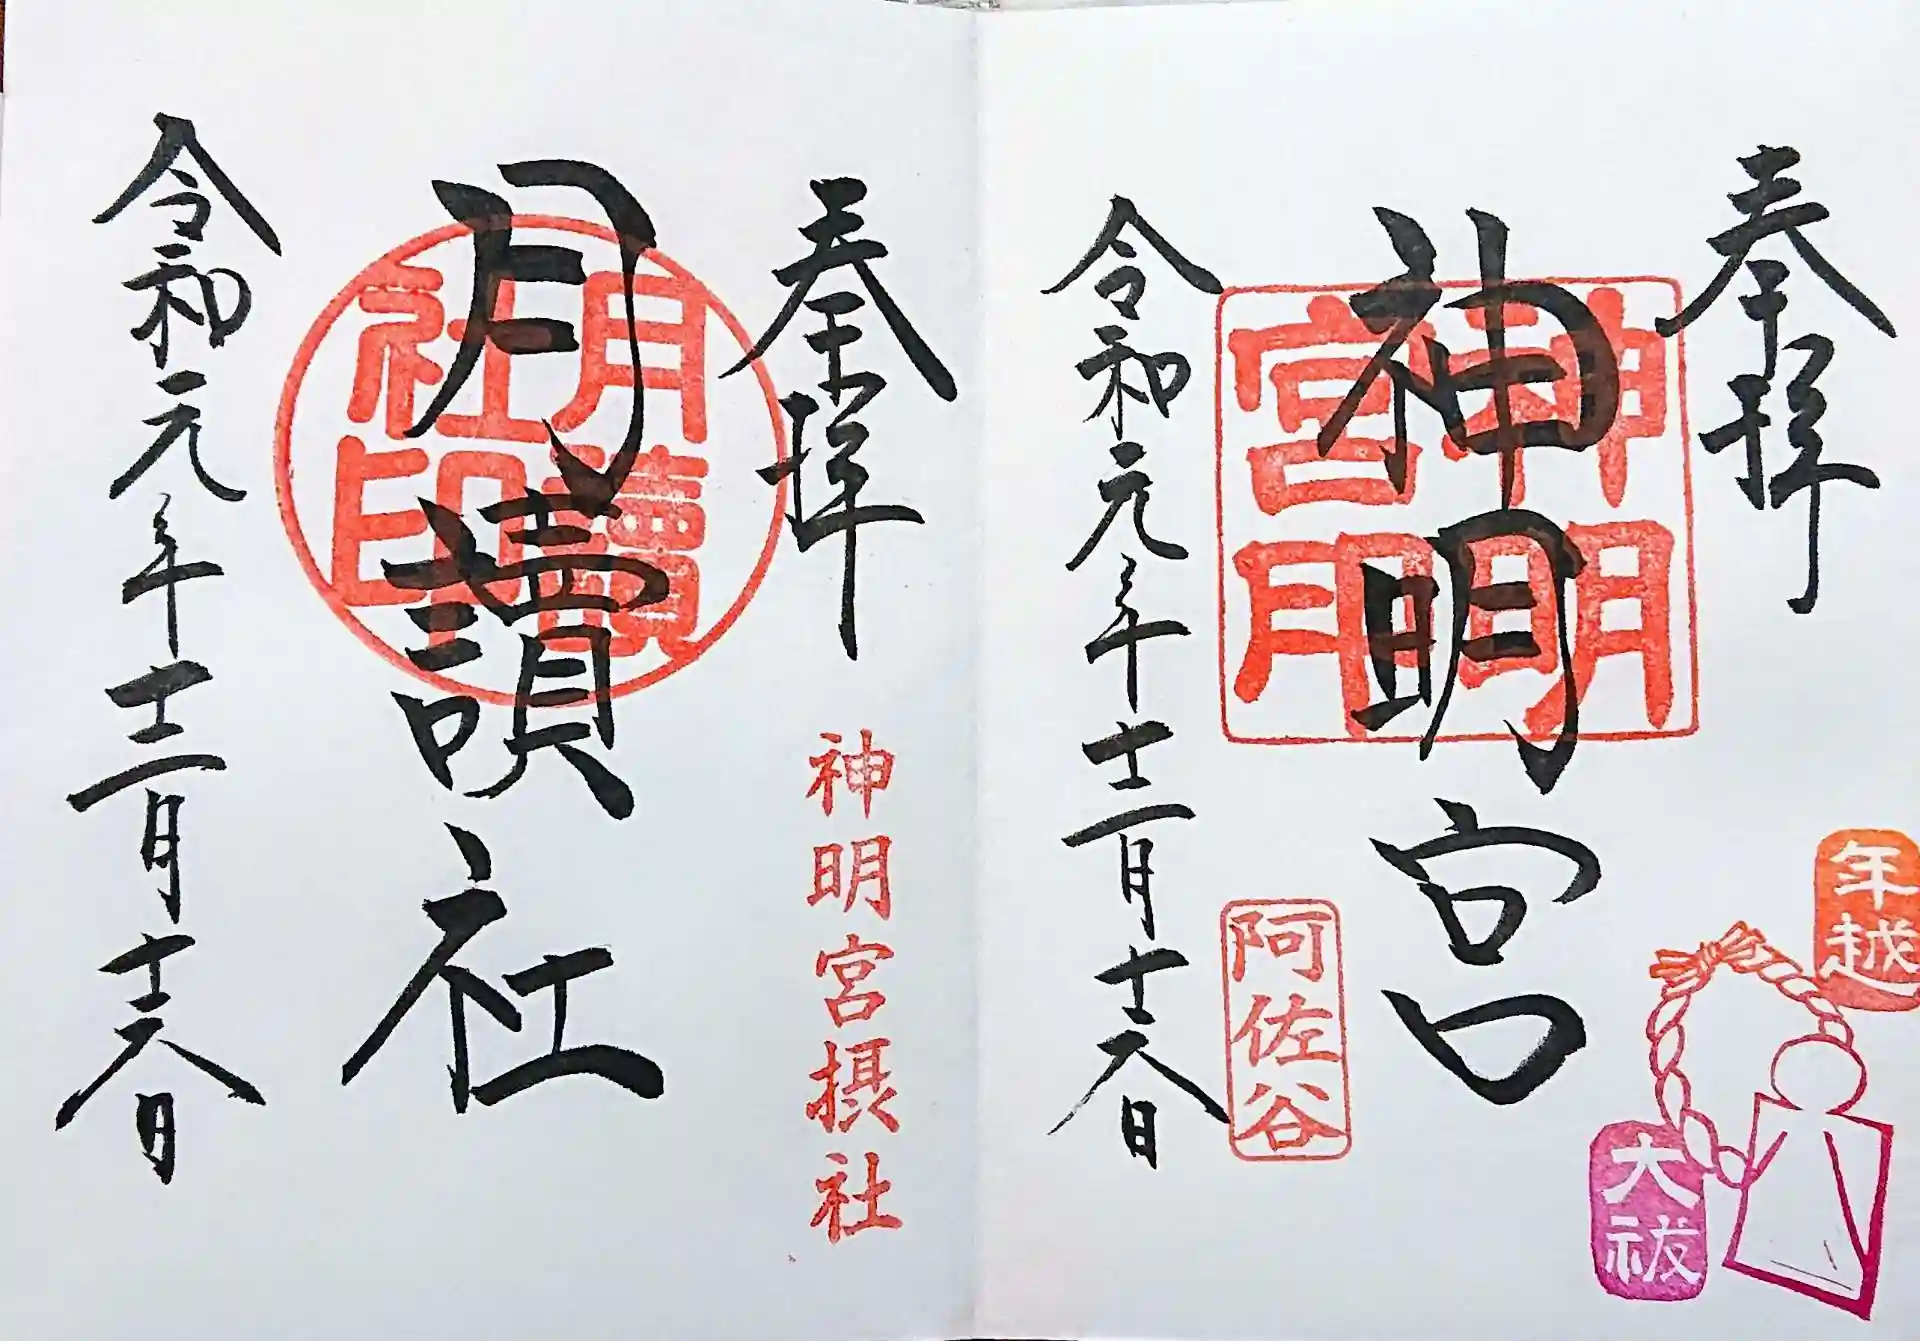 奉拝
神明宮
神明
宮印
令和元年十二月十六日
阿佐谷
年越
大祓
奉拝
神明宮摂社
月讀社
月讀
社印
令和元年十二月十六日